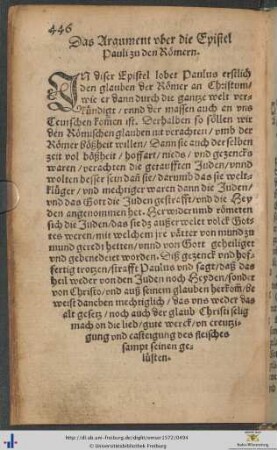 446
Das Argument vber die Epistel
Pauli zu den Römern.
IN diser Epistel lobet Paulus erstlich
den glauben der Römer an Christum/
wie er dann durch die gantze welt ver-
kündigt/ vnnd der massen auch an vns
Teutschen kom̃en ist. Derhalben so söllen wir
den Römischen glauben nit verachten/ vmb der
Römer bößheit willen/ Dann sie auch der selben
zeit vol bößheit/ hoffart/ nieds/ vnd gezencks
waren/ verachten die getaufften Juden/ vnnd
wolten besser sein dañ sie/ darumb das sie welt-
klüger/ vnd mechtiger waren dann die Juden/
vnd das Gott die Juden gestrafft/ vnd die Hey
den angenommen het. Herwider vmb römeten
sich die Juden/ das sie dz außerwelet volck Got
tes weren/ mit welchem jre vätter von mund zu
mund geredt hetten/ vnnd von Gott geheiliget
vnd gebenedeiet worden. Diß gezenck vnd hof-
fertig trotzen/ strafft Paulus vnd sagt/ daß das
heil weder von den Juden noch Heyden/ sonder
von Christo/ vnd auß seinem glauben herkom̃/ be
weist daneben mechtiglich/ das vns weder das
alt gesetz/ noch auch der glaub Christi selig
mach on die lied/ gute werck/ vn creutzi-
gung vnd casteigung des fleisches
sampt seinen ge-
lüsten.
http://dl.ub.uni-freiburg.de/diglit/emser1572/0494
© Universitätsbibliothek Freiburg